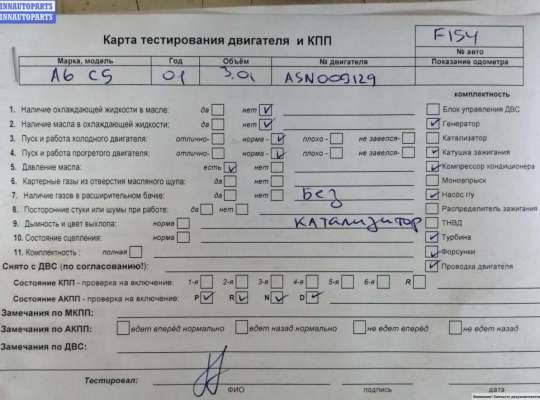 INNAVTOPARTS
INNAVTOPARTS
Карта тестирования двигателя и КПП
F154
№ авто
Марка, модель Год Объём № двигателя Показание одометра
A6 C5 01 3.0i ASN009129
комплектность
1. Наличие охлаждающей жидкости в масле: да нет
Блок управления ДВС
2. Наличие масла в охлаждающей жидкости: да нет
Генератор
3. Пуск и работа холодного двигателя: отлично- норма - плохо - не завелся-
Катализатор
4. Пуск и работа прогретого двигателя: отлично- норма - плохо - не завелся-
Катушка зажигания
5. Давление масла: есть нет
Компрессор кондиционера
6. Картерные газы из отверстия масляного щупа: да нет
Моновпрыск
7. Наличие газов в расширительном бачке: да нет Без
Насос г/у
8. Посторонние стуки или шумы при работе: да нет
Распределитель зажигания
9. Дымность и цвет выхлопа: норма катализатор
ТНВД
10. Состояние сцепления: норма
Турбина
11. Комплектность : полная
Форсунки
Снято с ДВС (по согласованию!):
Проводка двигателя
Состояние КПП - проверка на включение: 1-я 2-я 3-я 4-я 5-я 6-я R
Состояние АКПП - проверка на включение: P R N D
Замечания по МКПП:
Замечания по АКПП: едет вперёд нормально едет назад нормально не едет вперёд не едет назад
Замечания по ДВС:
Тестировал:
ФИО подпись дата